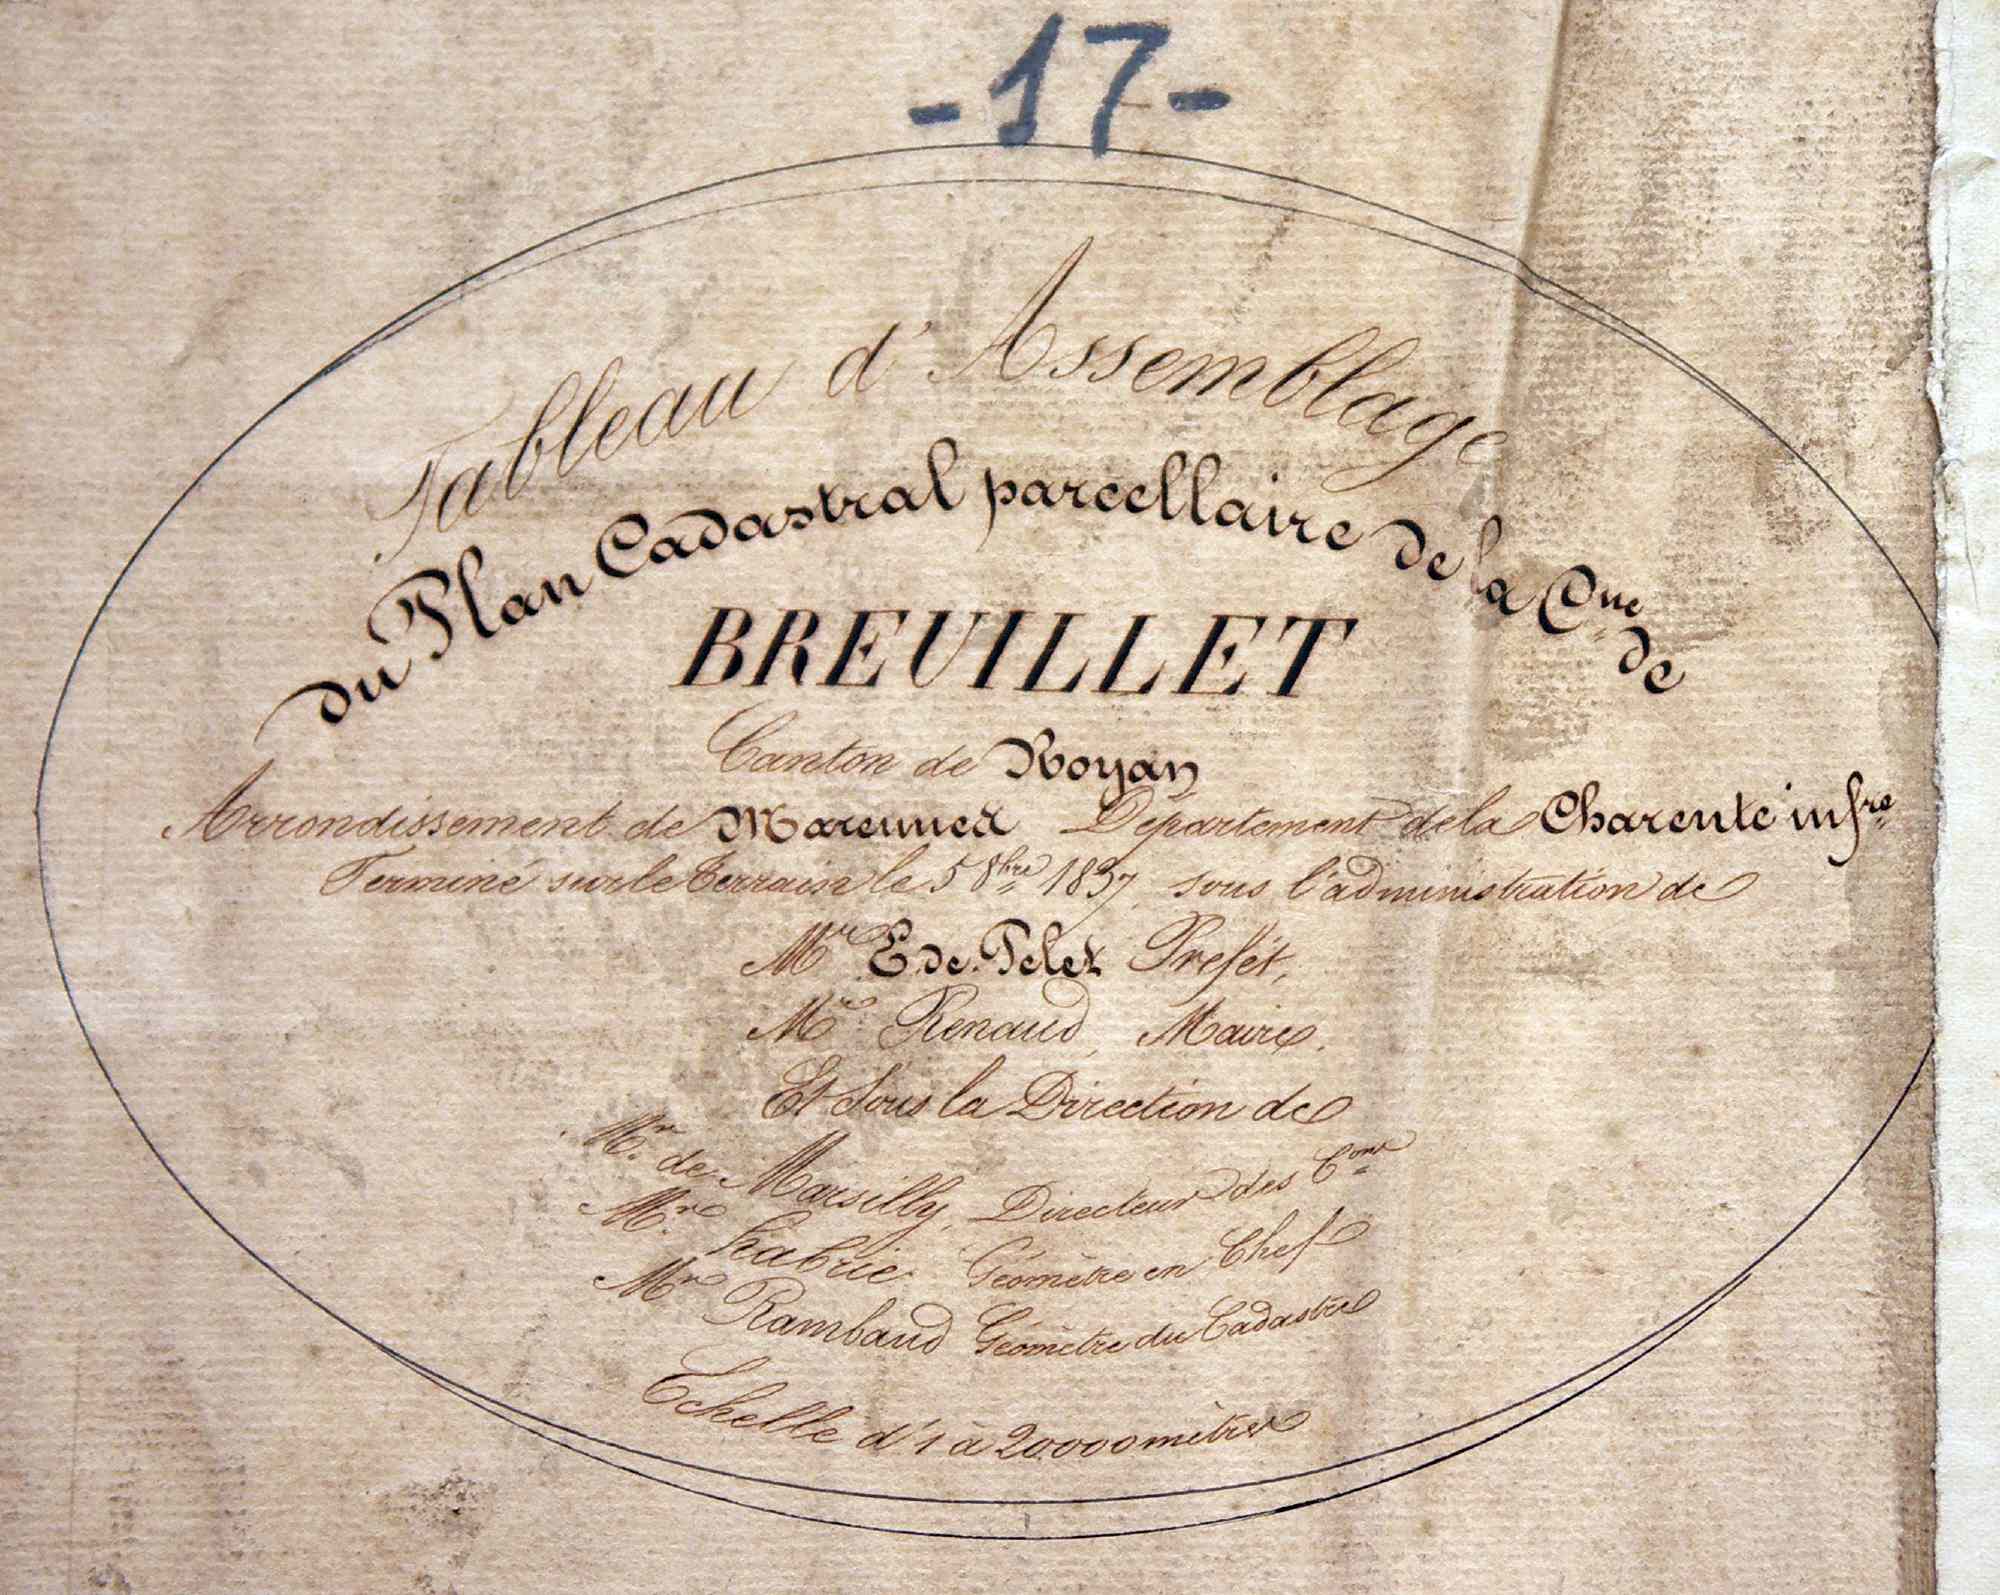 -17-
Tableau d'Assemblage
du Plan Cadastral parcellaire de la Cne de
BREUILLET
Canton de Royan
Arrondissement de Marennes Département de la Charente infre
Terminé sur le Terrain le 5 8bre 1837 sous l'administration de
Mr E. de. Pelet Prefét,
Mr Renaud, Maire.
Et Sous la Direction de
Mr. de Marsilly, Directeur des Cons
Mr. Labrie Géomètre en Chef
Mr Rambaud Géomètre du Cadastre
Echelle d'1 à 20.000 mètres